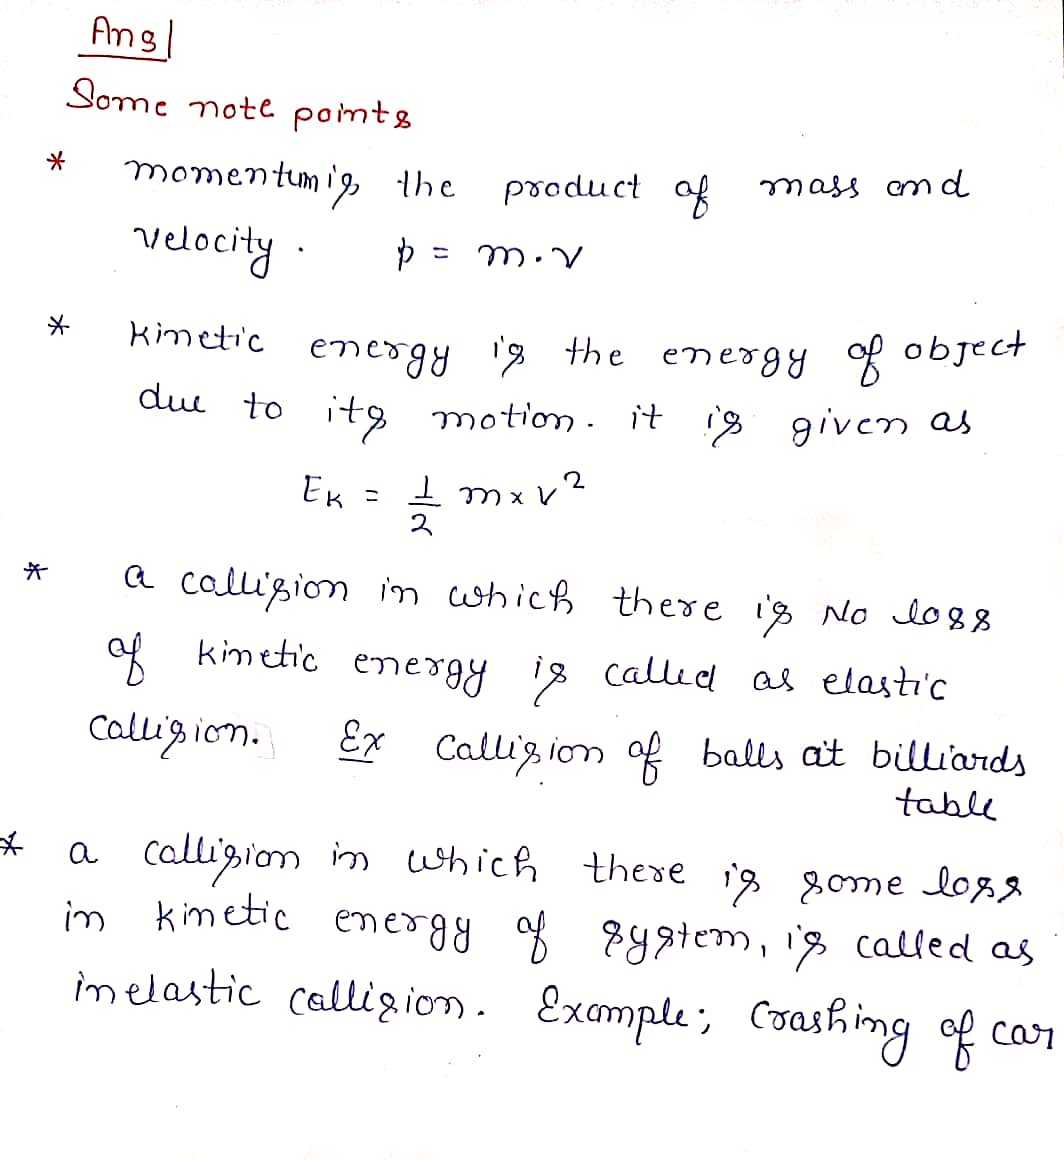 Ans|
Some note points
* momentum is the product of mass and
velocity. p = m.v
* Kinetic energy is the energy of object
due to its motion. it is given as
EK = 1/2 m×v²
* a collision in which there is No loss
of kinetic energy is called as elastic
collision. Ex Collision of balls at billiards
table
* a collision in which there is some loss
in kinetic energy of system, is called as
inelastic collision. Example; Crashing of car